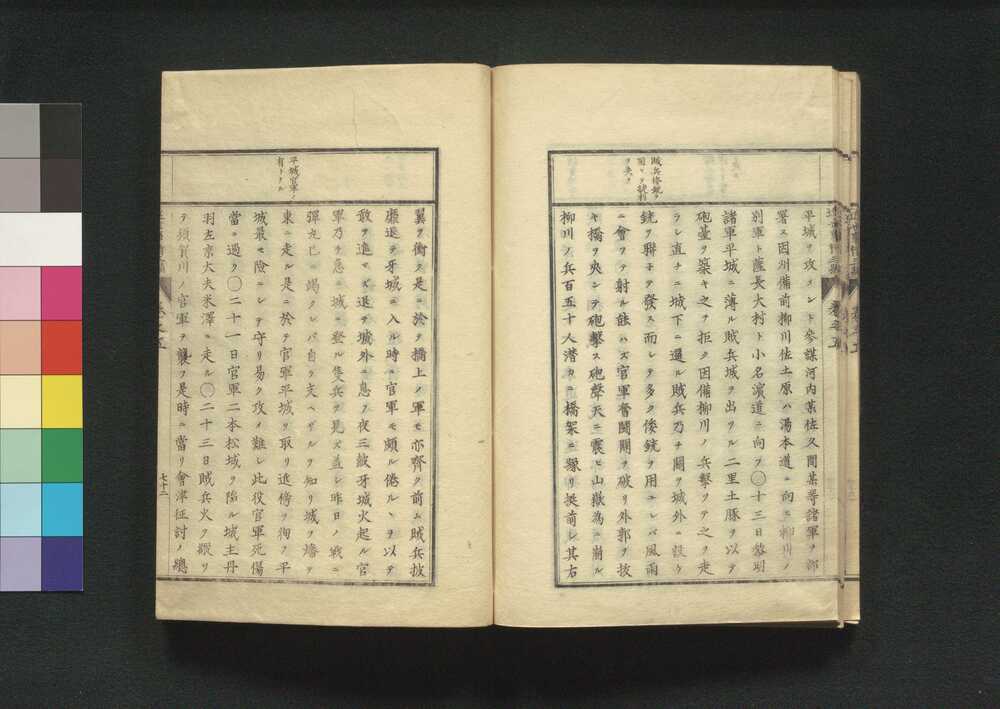 平城ヲ攻メント參謀河內某佐久間某等諸軍ヲ部
署ス因州備前柳川佐土原ハ湯本道ニ向ヒ柳川ノ
別軍ト薩長大村ト小名濱道ニ向フ〇十三日黎明
諸軍平城ニ薄ル賊兵城ヲ出ツル二里土豚ヲ以テ
砲臺ヲ築キ之ヲ拒ク因備柳川ノ兵擊ツテ之ヲ走
ラシ直チニ城下ニ逼ル賊兵乃チ關ヲ城外ニ設ケ
銃ヲ聯子テ發ス而シテ多ク倭銃ヲ用ユレバ風雨
ニ會フテ射ル能ハズ官軍奮鬪關ヲ破リ外郭ヲ拔
キ橋ヲ夾ンテ砲擊ス砲聲天ニ震ヒ山嶽為ニ崩ル
柳川ノ兵百五十人潜カニ橋架ニ緣リ挺前シ其右
賊兵倭銃ヲ
用ヰテ勝利
ヲ失フ
翼ヲ衝ク是ニ於テ橋上ノ軍モ亦齊ク前ム賊兵披
靡退テ牙城ニ入ル時ニ官軍モ頗ル倦ルヽヲ以テ
敢テ進マズ退テ城外ニ息フ夜三鼓牙城火起ル官
軍乃チ急ニ城ニ登ル隻兵ヲ見ズ蓋シ昨日ノ戰ニ
彈丸已ニ竭クレバ自ラ支ヘザルヲ知リ城ヲ燔テ
東ニ走ル是ニ於テ官軍平城ヲ取リ近傍ヲ徇フ平
城最モ險ニシテ守リ易ク攻メ難シ此役官軍死傷
當ニ過ク〇二十一日官軍二本松城ヲ陷ル城主丹
羽左京大夫米澤ニ走ル〇二十三日賊兵火ヲ縱リ
テ須賀川ノ官軍ヲ襲フ是時ニ當リ會津征討ノ總
平城官軍ノ
有トナル
七十二